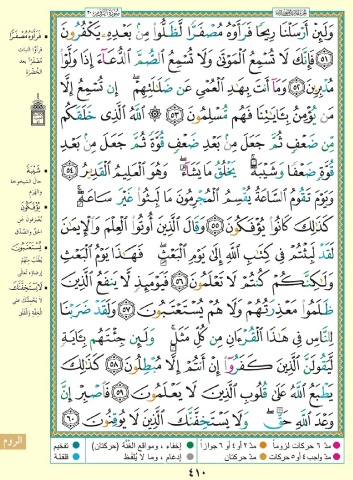 وَلَئِنْ أَرْسَلْنَا رِيحًا فَرَأَوْهُ مُصْفَرًّا لَّظَلُّوا۟ مِنۢ بَعْدِهِۦ يَكْفُرُونَ
﴿٥١﴾ فَإِنَّكَ لَا تُسْمِعُ ٱلْمَوْتَىٰ وَلَا تُسْمِعُ ٱلصُّمَّ ٱلدُّعَآءَ إِذَا وَلَّوْا۟
مُدْبِرِينَ ﴿٥٢﴾ وَمَآ أَنتَ بِهَـٰدِ ٱلْعُمْىِ عَن ضَلَـٰلَتِهِمْ ۖ إِن تُسْمِعُ إِلَّا
مَن يُؤْمِنُ بِـَٔايَـٰتِنَا فَهُم مُّسْلِمُونَ ﴿٥٣﴾ ۞ ٱللَّهُ ٱلَّذِى خَلَقَكُم
مِّن ضَعْفٍ ثُمَّ جَعَلَ مِنۢ بَعْدِ ضَعْفٍ قُوَّةً ثُمَّ جَعَلَ مِنۢ بَعْدِ
قُوَّةٍ ضَعْفًا وَشَيْبَةً ۚ يَخْلُقُ مَا يَشَآءُ ۖ وَهُوَ ٱلْعَلِيمُ ٱلْقَدِيرُ ﴿٥٤﴾
وَيَوْمَ تَقُومُ ٱلسَّاعَةُ يُقْسِمُ ٱلْمُجْرِمُونَ مَا لَبِثُوا۟ غَيْرَ سَاعَةٍ ۚ
كَذَٰلِكَ كَانُوا۟ يُؤْفَكُونَ ﴿٥٥﴾ وَقَالَ ٱلَّذِينَ أُوتُوا۟ ٱلْعِلْمَ وَٱلْإِيمَـٰنَ
لَقَدْ لَبِثْتُمْ فِى كِتَـٰبِ ٱللَّهِ إِلَىٰ يَوْمِ ٱلْبَعْثِ ۖ فَهَـٰذَا يَوْمُ ٱلْبَعْثِ
وَلَـٰكِنَّكُمْ كُنتُمْ لَا تَعْلَمُونَ ﴿٥٦﴾ فَيَوْمَئِذٍ لَّا يَنفَعُ ٱلَّذِينَ
ظَلَمُوا۟ مَعْذِرَتُهُمْ وَلَا هُمْ يُسْتَعْتَبُونَ ﴿٥٧﴾ وَلَقَدْ ضَرَبْنَا
لِلنَّاسِ فِى هَـٰذَا ٱلْقُرْءَانِ مِن كُلِّ مَثَلٍ ۚ وَلَئِن جِئْتَهُم بِـَٔايَةٍ
لَّيَقُولَنَّ ٱلَّذِينَ كَفَرُوٓا۟ إِنْ أَنتُمْ إِلَّا مُبْطِلُونَ ﴿٥٨﴾ كَذَٰلِكَ
يَطْبَعُ ٱللَّهُ عَلَىٰ قُلُوبِ ٱلَّذِينَ لَا يَعْلَمُونَ ﴿٥٩﴾ فَٱصْبِرْ إِنَّ
وَعْدَ ٱللَّهِ حَقٌّ ۖ وَلَا يَسْتَخِفَّنَّكَ ٱلَّذِينَ لَا يُوقِنُونَ ﴿٦٠﴾
فَرَأَوْهُ مُصْفَرًّا
فرأوا النبات
مصفرا بعد
الخضرة
شَيْبَةً
حال الشيخوخة
والهرم
يُؤْفَكُونَ
يُسْتَعْتَبُونَ
لَا يَسْتَخِفَّنَّكَ
الروم
مدّ ٦ حركات لزوماً
مدّ ٢ أو ٤ أو ٦ جوازاً
إخفاء، ومواقع الغُنَّة (حركتان)
تفخيم
مدّ واجب ٤ أو ٥ حركات
مدّ حركتان
إدغام، وما لا يُلفظ
قلقلة
٤١٠